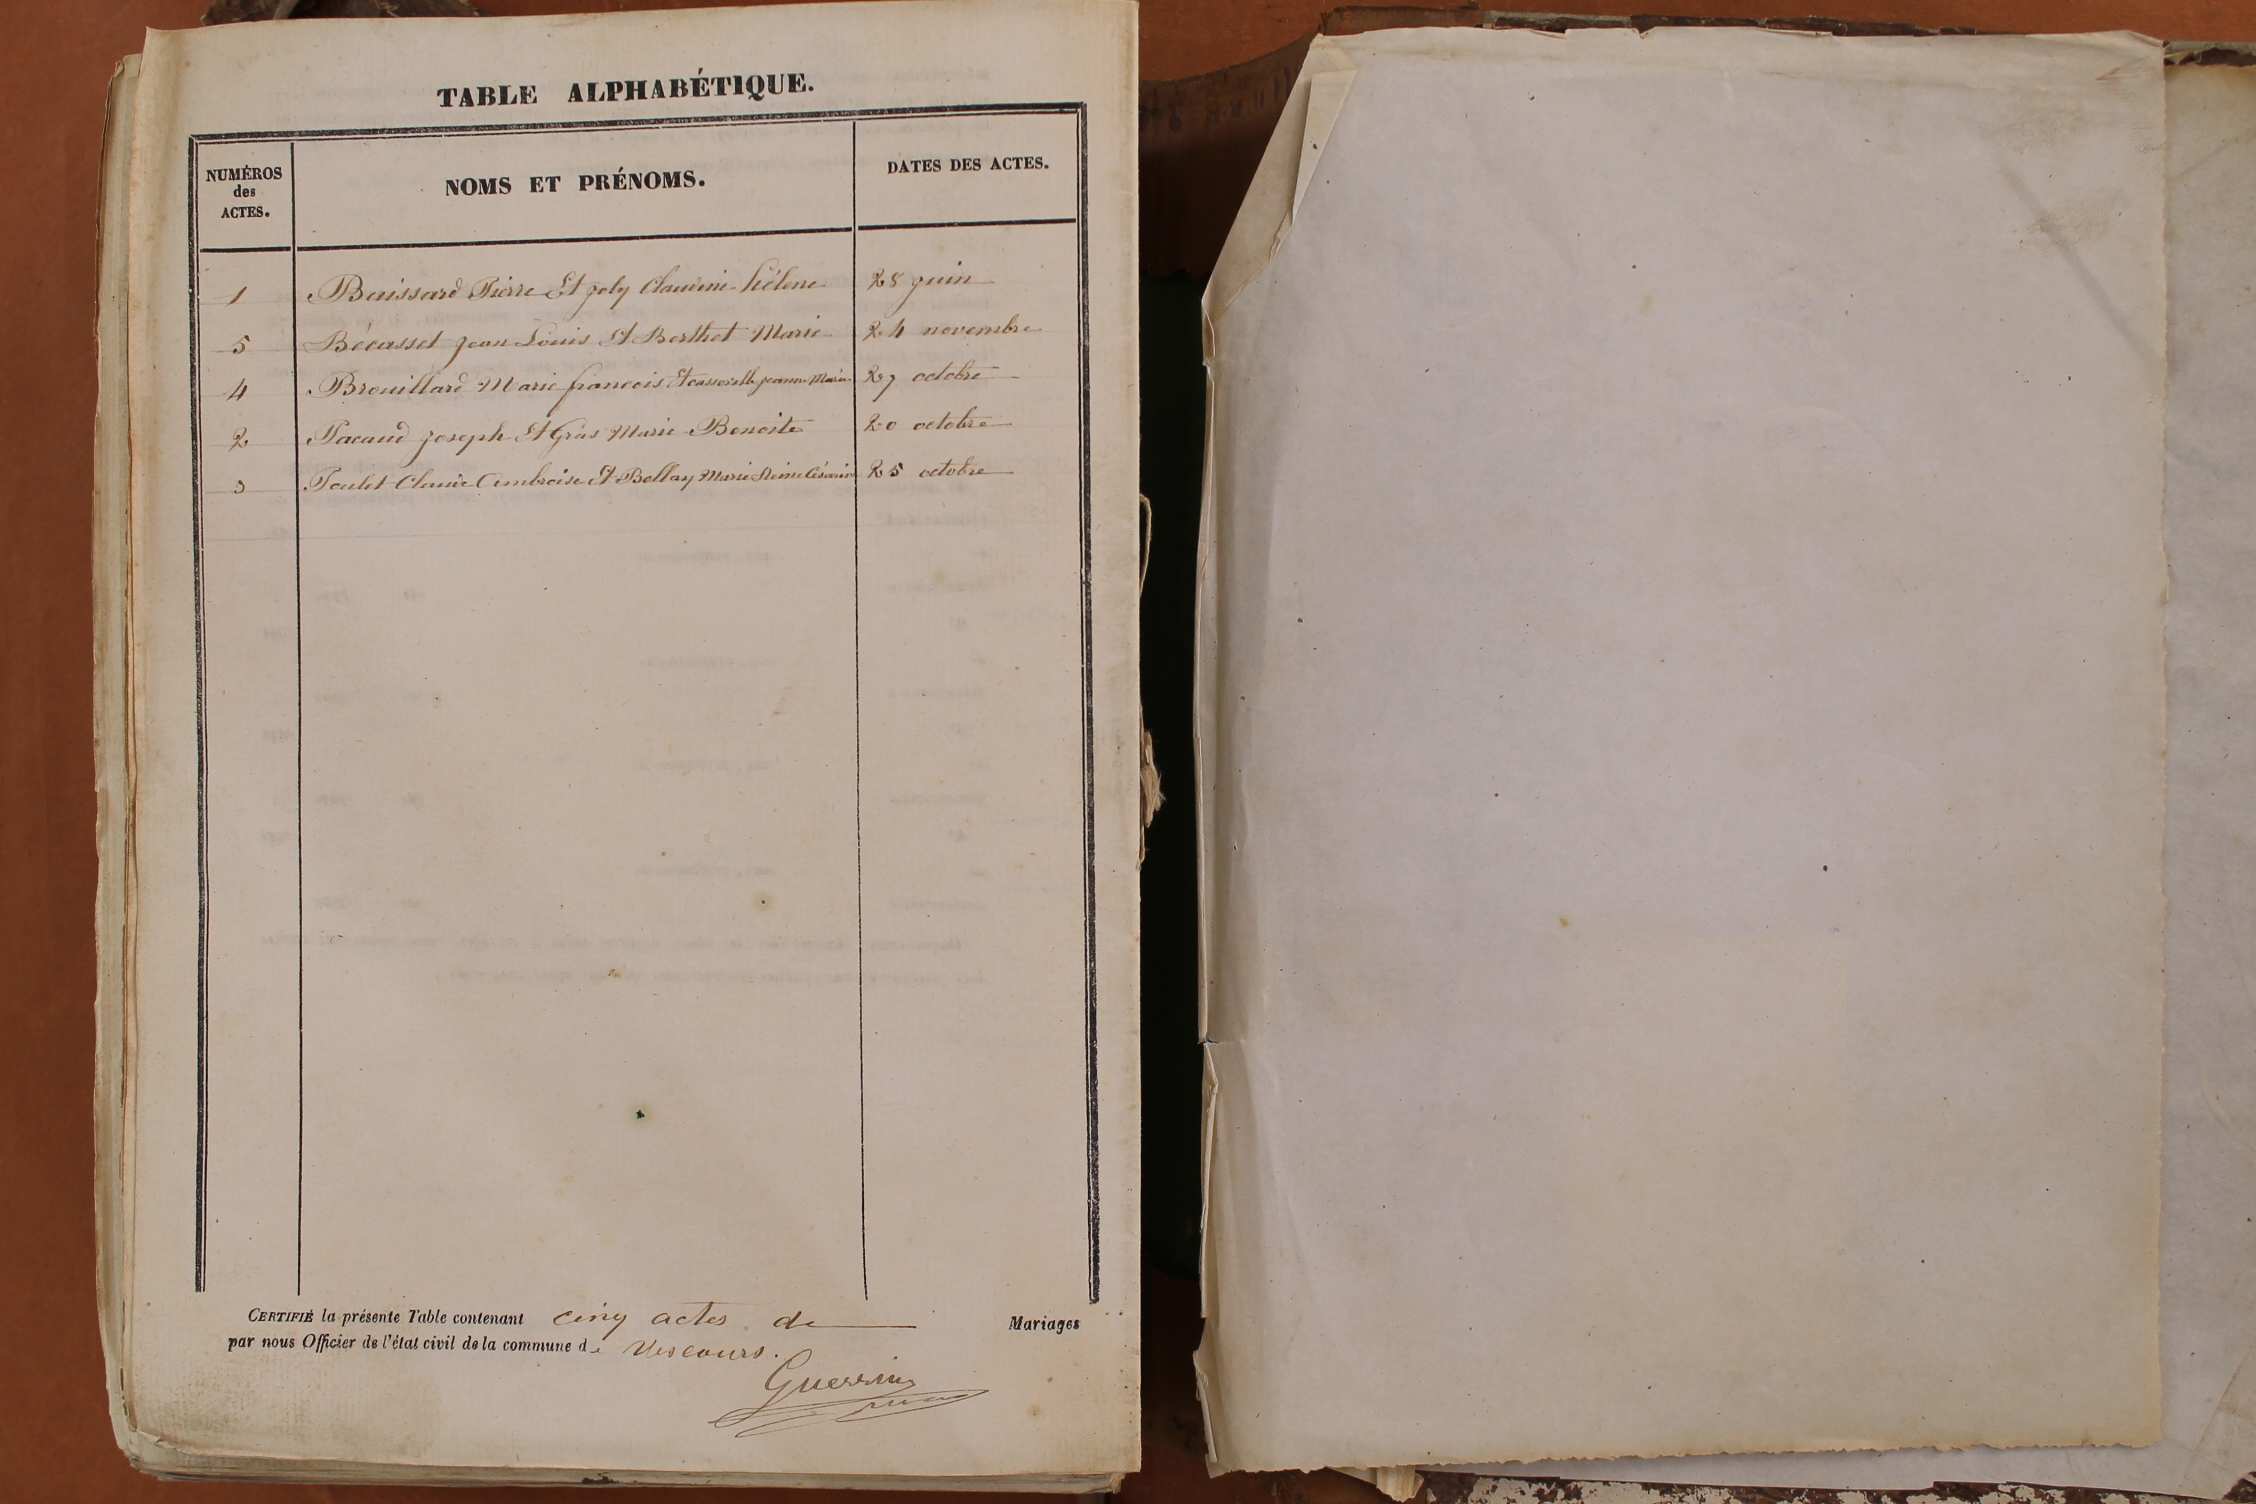 TABLE ALPHABÉTIQUE.
NUMÉROS
des
ACTES.
NOMS ET PRÉNOMS.
DATES DES ACTES.
1 Baissard Pierre Et joly Claudine hélène 28 juin
5 Bécasset jean Louis Et Berthet Marie 24 novembre
4 Brouillard Marie françois Et jeanne Marie 27 octobre
2 Pacaud joseph Et Gras Marie Benoite 20 octobre
3 Poulet Claude Ambroise Et Bellay Marie Reine Césarine 25 octobre
CERTIFIÉ la présente Table contenant cinq actes de Mariages
par nous Officier de l'état civil de la commune de Vescours.
Guerrin